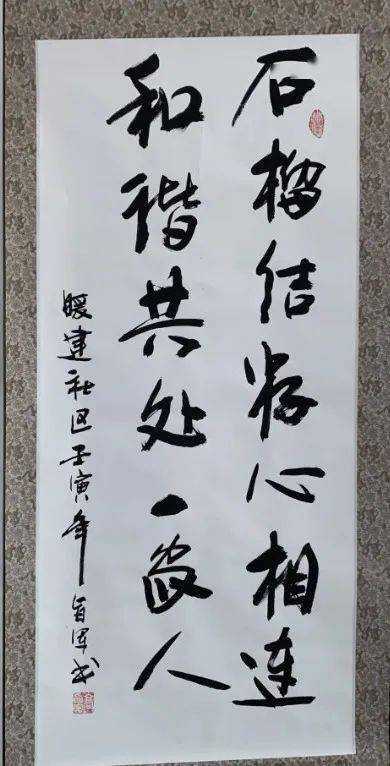 石榴结籽心相连
和谐共处一家人
暖建社区壬寅年 军书